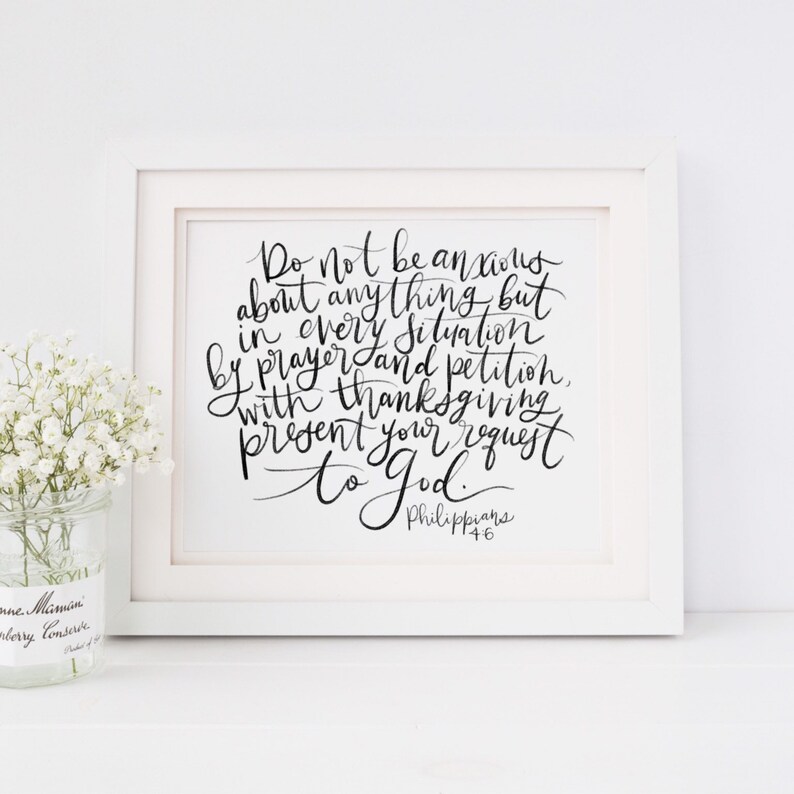 Do not be anxious
about anything but
in every situation
by prayer and petition,
with thanksgiving
present your request
to God.
Philippians
4:6
nne Maman
berry Conserve
Product of